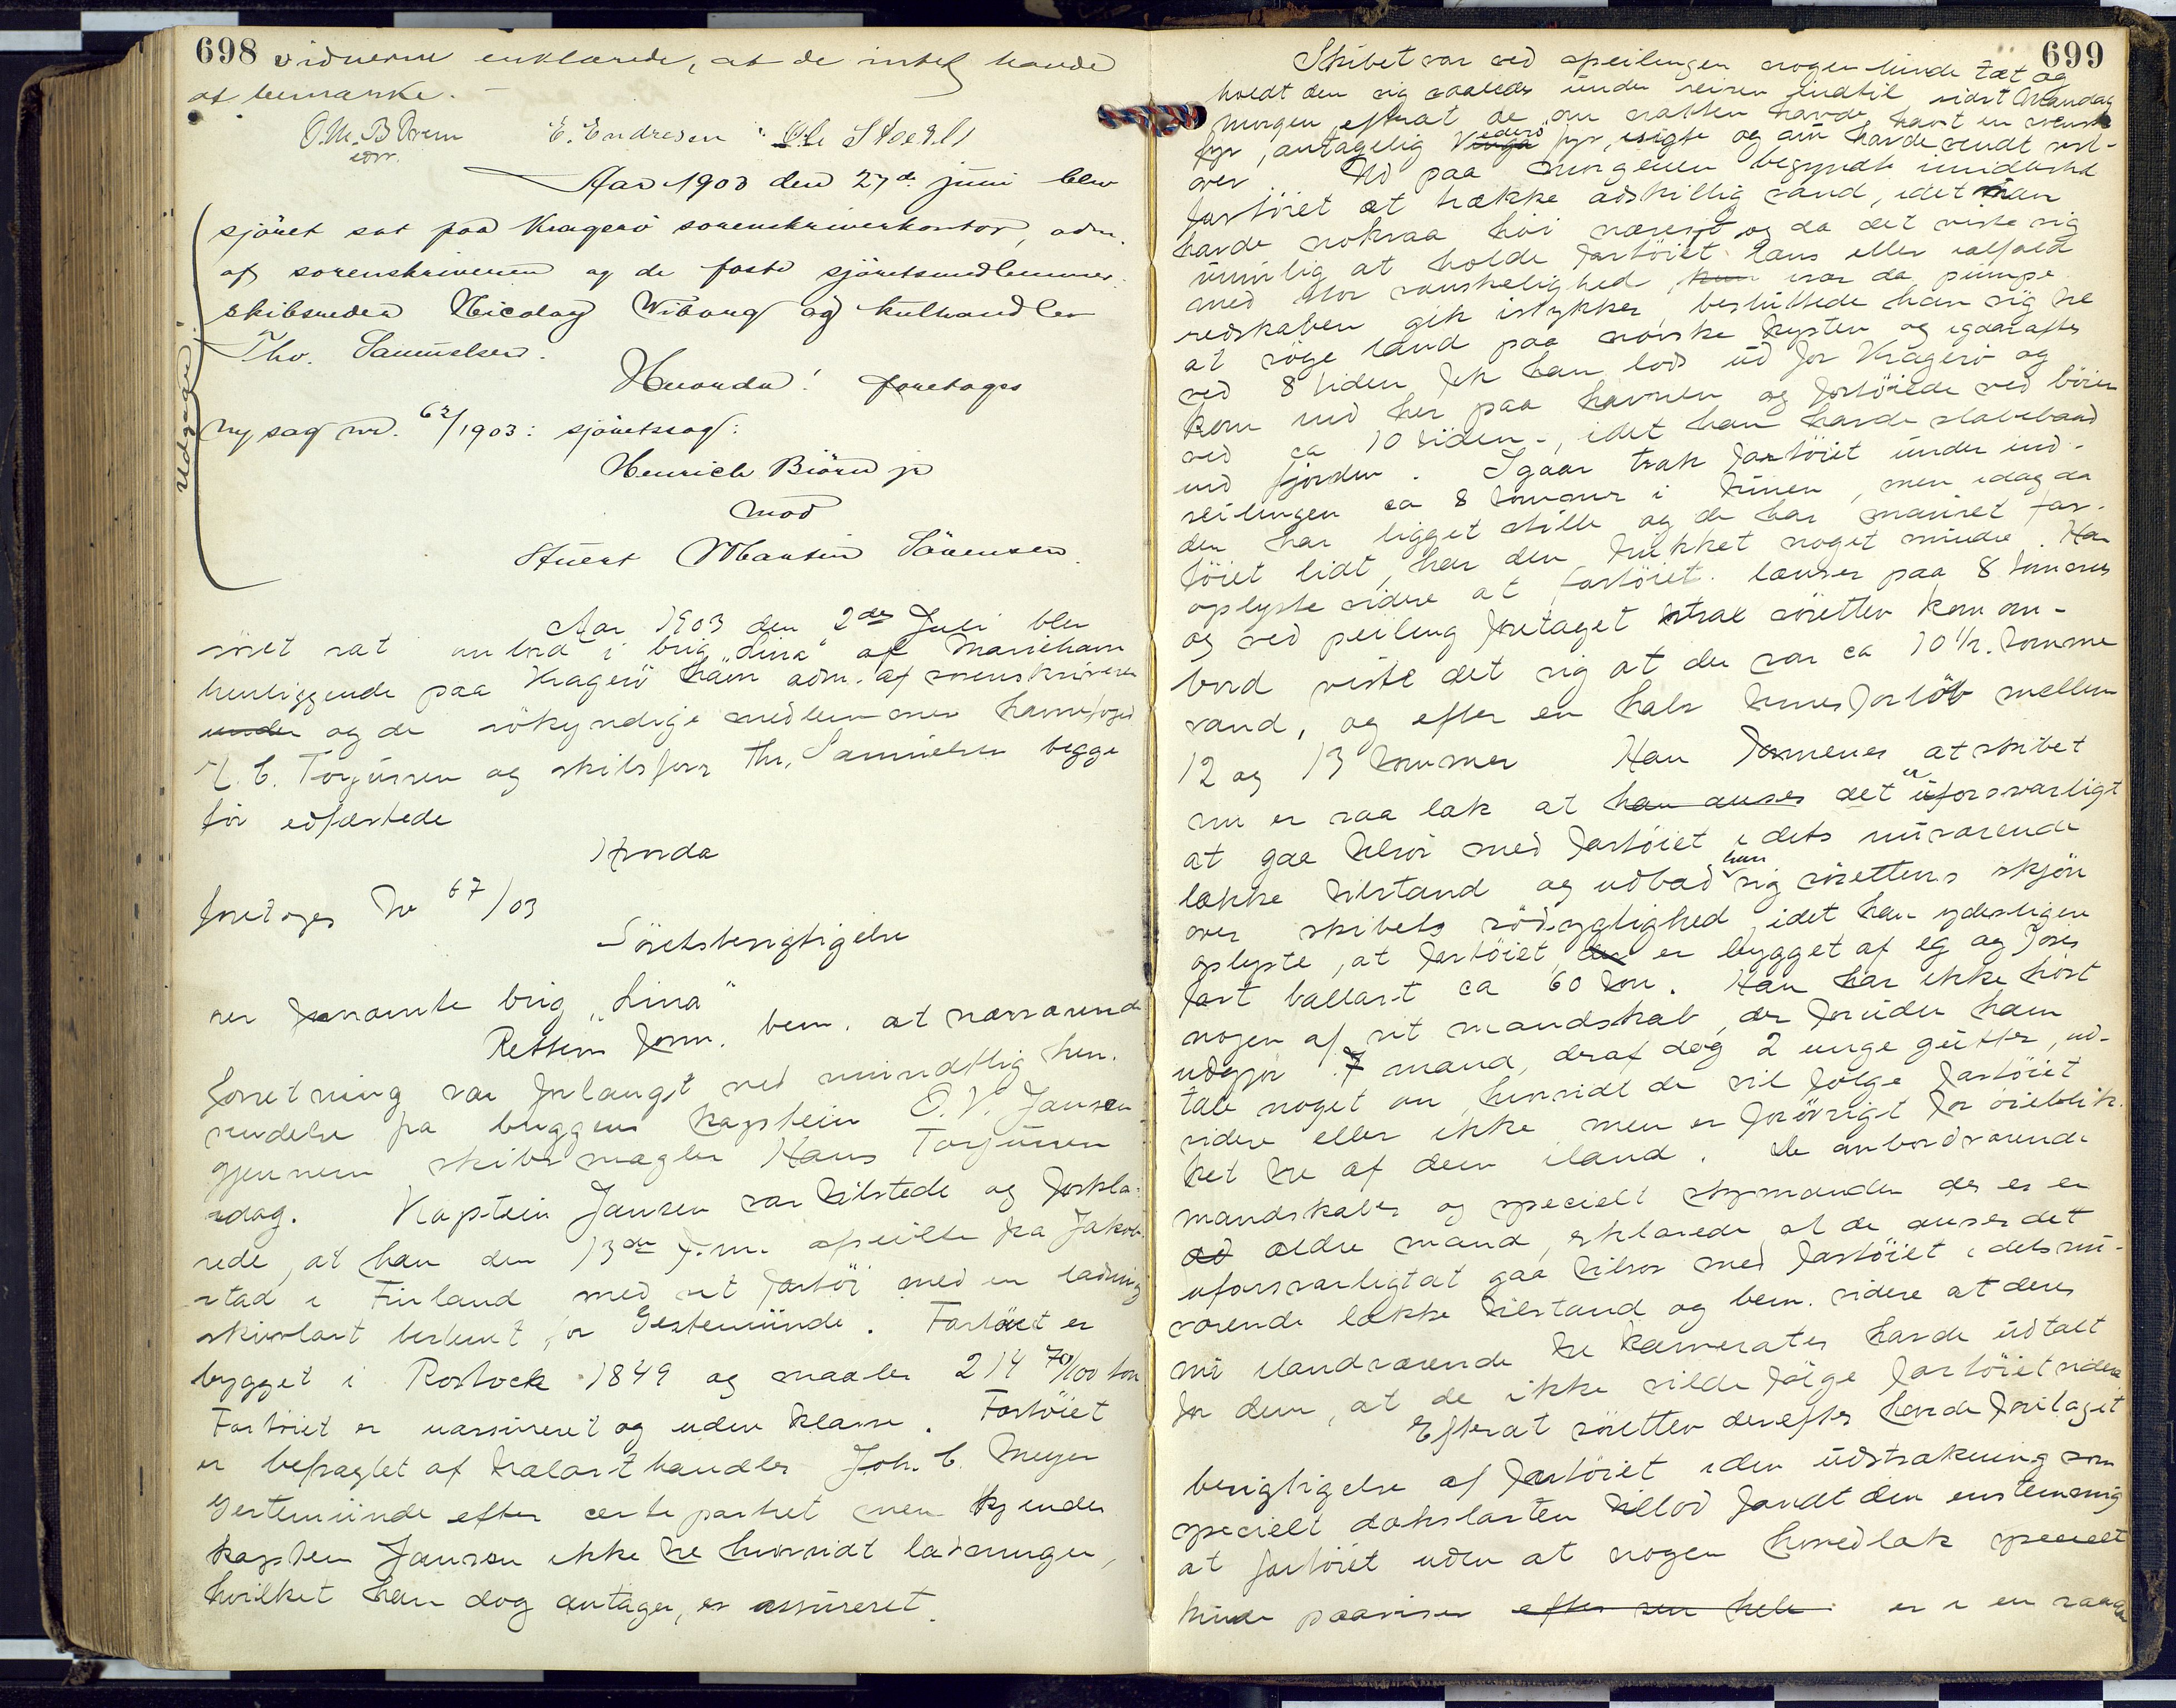 698
vidnerne erklærede, at de intet havde
at bemærke. -
O.M. B
E. Endresen
Ole
edv.
Aar 1903 den 27de juni blev
sjöret sat paa Kragerö sorenskriverkontor, adm.
af sorenskriveren og de faste sjöretsmedlemmer.
skibsreder Nicolay Wiborg og kulhandler
Tho. Samuelsen.
Udgaar!
Hvorda! foretoges
Ny sag nr. 62/1903: sjöretssag:
Henrich Biörn jr
mod
Stuert Martin Sörensen.
Aar 1903 den 2den Juli blev
söret sat ombord i brig "Lina" af Mariehavn
henliggende paa Kragerö havn adm. af sorenskriveren
under og de sökyndige medlemmer havnefoged
C. Torjussen og skibsförer Thr. Samuelsen begge
för edfæstede
Hvorda
foretoges No 67/03
Söretsbesigtigelse
over fornævnte brig "Lina"
Rettens Form. bem. at nærværende
forretning var forlangt ved mundtlig hen-
vendelse fra briggens kaptein O. V. Jansen
gjennem skibsmægler Hans Torjussen
idag. Kaptein Jansen var tilstede og forkla-
rede, at han den 13de f.m. afseilte fra Jakob-
stad i Finland med sit fartöi med en ladning
bestemt for Gestemünde. Fartöiet er
bygget i Rostock 1849 og maaler 214 70/100 ton
Fartöiet er uassureret og uden klasse. Fartöiet
er befragtet af trælasthandler Joh. C. Meyer
Gestemünde efter certepartiet men kjender
kaptein Jansen ikke til hvorvidt ladningen,
hvilket han dog antager, er assureret.
699
Skibet var ved afseilingen nogenlunde tæt og
holdt den sig saaledes under reisen indtil sidst Mandag
morgen, efterat de om natten havde havt en svensk
fyr, antagelig Vinga fyr, isigte og da havde vendt vest-
over. Ud paa morgenen begyndte imidlertid
fartöiet at trække adskillig vand, idet man
havde noksaa höi og da det viste sig
umulig at holde fartöiet læns eller ialfald
med stor vanskelighed, især da pumpe-
redskaben gik istykker, besluttede han sig til
at söge land paa norske kysten og igaaraftes
ved 8 tiden fik han lods ud for Kragerö og
kom ind her paa havnen og fortöiede ved böien
ved ca 10 tiden -, idet han havde slæbebaad
ind fjorden. Igaar trak fartöiet under ind-
seilingen ca 8 tommer i timen, men idag da
den har ligget stille og de har far-
töiet lidt, har den trukket noget mindre. Han
oplyste videre at fartöiet lænser paa 8 tommer
og ved peiling foretaget strax söretten kom om-
bord viste det sig at der var ca 10 1/2 tomme
vand, og efter en halv times forlöb mellem
12 og 13 tommer Han formener at skibet
nu er saa læk at han anser det er uforsvarligt
at gaa tilsös med fartöiet i dets nuværende
lække tilstand og udbad han sig sörettens skjön
over skibets södygtighed, idet han yderligere
oplyste, at fartöiet der er bygget af eg og förer
fast ballast ca 60 ton. Han har ikke hört
nogen af sit mandskab, der foruden ham
udgjör 7 mand, deraf dog 2 unge gutter, ud-
tale noget om, hvorvidt de vil fölge fartöiet
videre eller ikke men er forövrigt for öieblik-
ket tre af dem iland. De ombordværende
mandskaber og specielt styrmanden der er en
ældre mand, erklærede at de anser det
uforsvarligt at gaa tilsös med fartöiet i dets nu-
værende lække tilstand og bem. videre at deres
nu ilandværende tre kamerater havde udtalt
for dem, at de ikke vilde fölge fartöiet videre
Efterat söretten derefter havde foretaget
besigtigelse af fartöiet i den udstrækning som
specielt dækslasten tillod fandt den enstemmig
at fartöiet uden at nogen hovedlæk specielt
kunde paavises efter sin hele er i en saadan